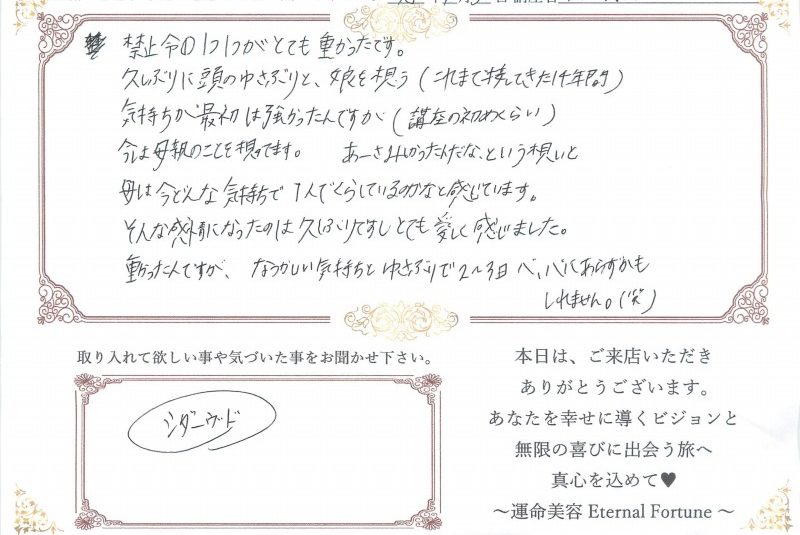 禁止令の1つ1つがとても重かったです。
久しぶりに頭のゆさぶりと、娘を想う（これまで接してきた14年間）
気持ちが最初は強かったんですが（講座の初めくらい）
今は母親のことを想ってます。 あーさみしかったんだな、という想いと
母は今どんな気持ちで1人でくらしているのかなと感じています。
そんな感情になったのは久しぶりですしとても愛しく感じました。
重かったんですが、なつかしい気持ちとゆさぶりで2〜3日
しれません。(笑)
取り入れて欲しい事や気づいた事をお聞かせ下さい。
シダーウッド
本日は、ご来店いただき
ありがとうございます。
あなたを幸せに導くビジョンと
無限の喜びに出会う旅へ
真心を込めて♥
～運命美容 Eternal Fortune～